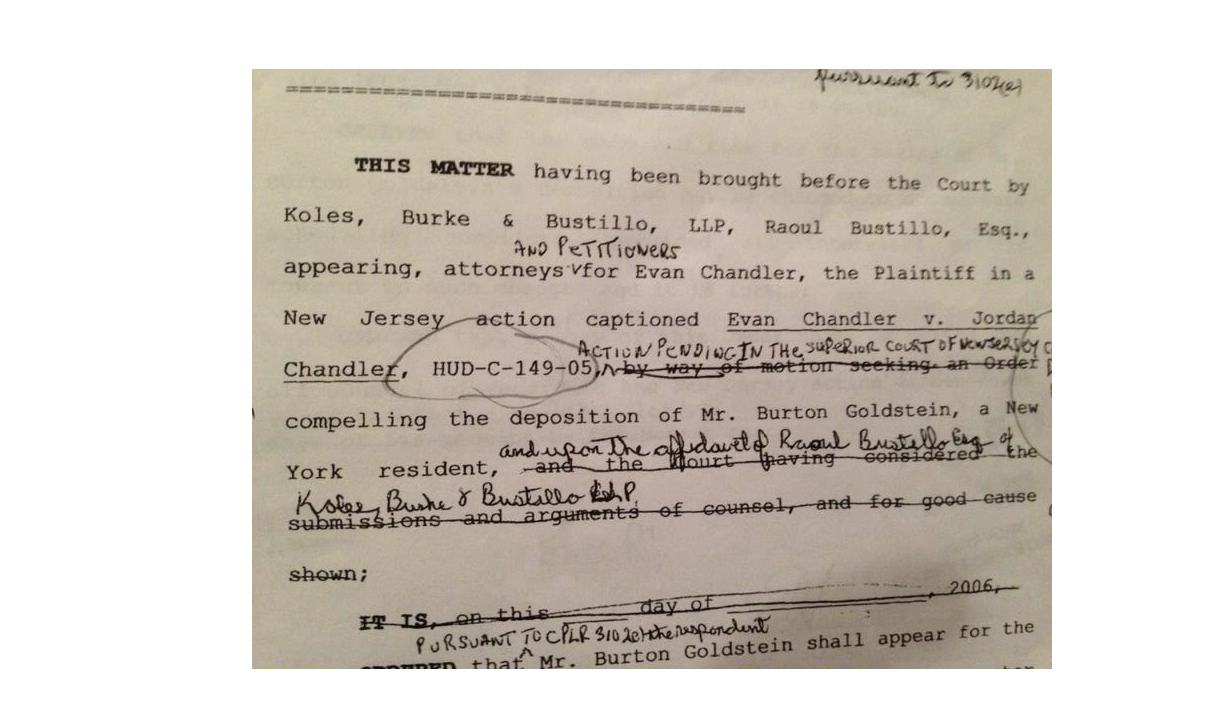 pursuant to 3102(e)
==================================
THIS MATTER having been brought before the Court by
Koles, Burke & Bustillo, LLP, Raoul Bustillo, Esq.,
AND PETITIONERS
appearing, attorneys for Evan Chandler, the Plaintiff in a
New Jersey action captioned Evan Chandler v. Jordan
ACTION PENDING IN THE SUPERIOR COURT OF NEW JERSEY
Chandler, HUD-C-149-05, by way of motion seeking an Order
compelling the deposition of Mr. Burton Goldstein, a New
and upon the affidavit of Raoul Bustello Esq of
York resident, and the Court having considered the
Koles, Burke & Bustillo LLP,
submissions and arguments of counsel, and for good cause
shown;
IT IS, on this day of , 2006,
PURSUANT TO CPLR 3102(e) the respondent
ORDERED that Mr. Burton Goldstein shall appear for the